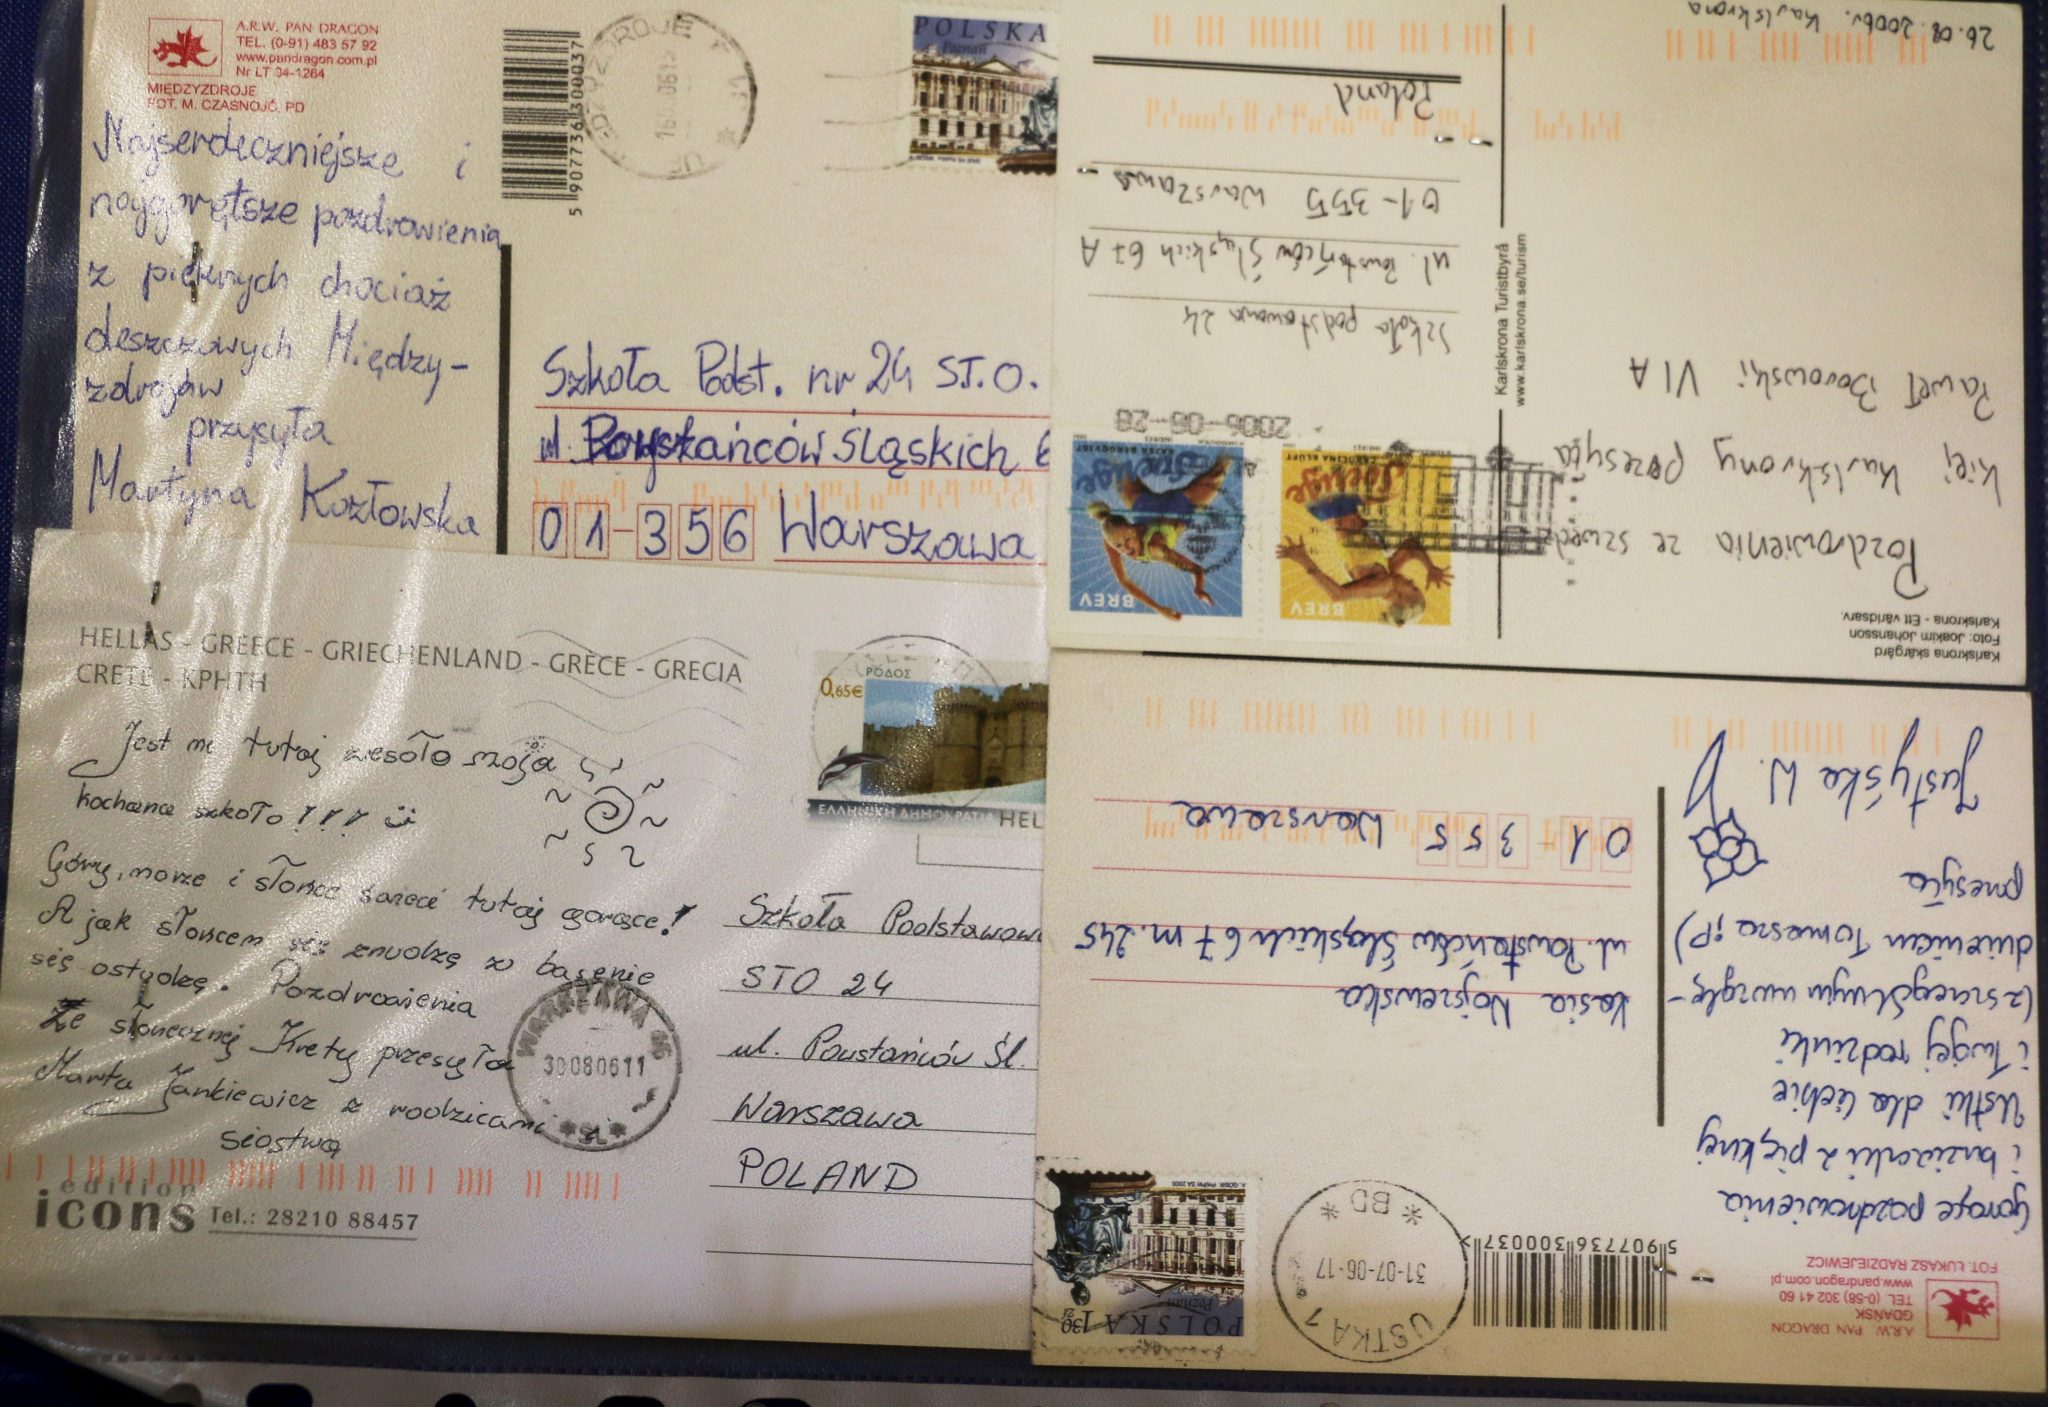 A.R.W. PAN DRAGON
TEL. (0-91) 483 57 92
www.pandragon.com.pl
Nr LT 04-1264
MIĘDZYZDROJE
FOT. M. CZASNOJĆ, PD
Najserdeczniejsze i
najgorętsze pozdrowienia
z pięknych chociaż
deszczowych Między-
zdrojów
przysyła
Martyna Kozłowska
5 907736 300037
POLSKA
Poznań
Szkoła Podst. nr 24 S.T.O.
ul. Powstańców Śląskich 6
01-356 Warszawa
HELLAS - GREECE - GRIECHENLAND - GRECE - GRECIA
CRETE - KPHTH
Jest mi tutaj wesoło moja
kochana szkoło!!!
Góry, morze i słońce świeci tutaj gorące!
A jak słońcem się znudzę w basenie
się ostudzę. Pozdrowienia
Ze słonecznej Krety przesyła
Marta Jankiewicz z rodzicami i
siostrą
edition
icons Tel.: 28210 88457
0,65€
ΡΟΔΟΣ
ΕΛΛΗΝΙΚΗ ΔΗΜΟΚΡΑΤΙΑ HEL
WARSZAWA
30080611
Szkoła Podstawow
STO 24
ul. Powstańców Śl.
Warszawa
POLAND
26.08.2006r. Karlskrona
Karlskrona skärgård
Foto: Joakim Johansson
Karlskrona - Ett världsarv.
Pozdrowienia ze szwedz
kiej Karlskrony przesyła
Paweł Borowski VI A
Karlskrona Turistbyrå
www.karlskrona.se/turism
BREV
Sverige
CAROLINA KLÜFT
BREV
Sverige
KAJSA BERGQVIST
2006-08-28
Szkoła podstawowa 24
ul. Powstańców Śląskich 67 A
01-355 Warszawa
Poland
A.R.W. PAN DRAGON
GDAŃSK
TEL. (0-58) 302 41 60
www.pandragon.com.pl
FOT. ŁUKASZ RADZIEJEWICZ
5 907736 300037
Gorące pozdrowienia
i buziaczki z pięknej
Ustki dla Ciebie
i Twojej rodzinki
(z szczególnym uwzglę-
dnieniem Tomasza ;P)
przesyła
Justyśka W.
USTKA 1
31-07-06-17
* BD *
POLSKA 1,30 zł
Poznań
Kasia Wojszewska
ul. Powstańców Śląskich 67 m. 245
01-355 Warszawa